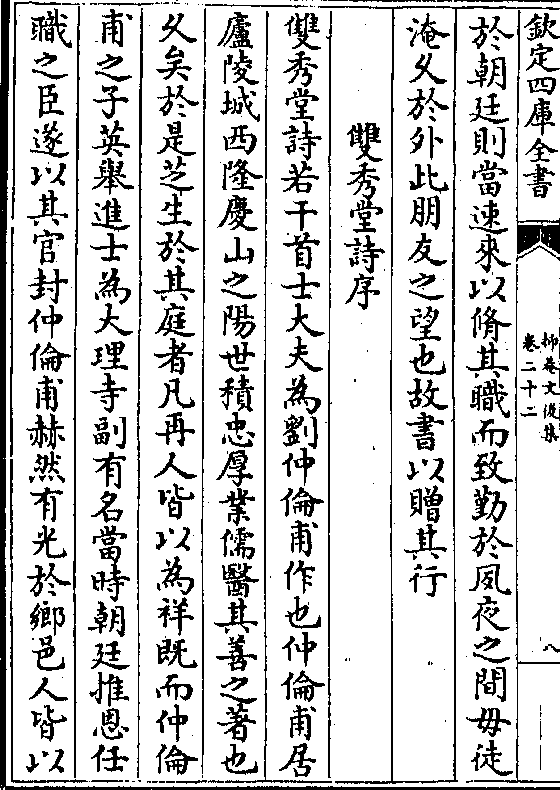 欽定四庫全書
抑菴文後集
卷二十二
八
於朝廷則當速來以脩其職而致勤於夙夜之間毋徒
淹久於外此朋友之望也故書以贈其行
雙秀堂詩序
雙秀堂詩若干首士大夫為劉仲倫甫作也仲倫甫居
廬陵城西隆慶山之陽世積忠厚業儒醫其善之著也
久矣於是芝生於其庭者凡再人皆以為祥既而仲倫
甫之子英舉進士為大理寺副有名當時朝廷推恩任
職之臣遂以其官封仲倫甫赫然有光於鄉邑人皆以